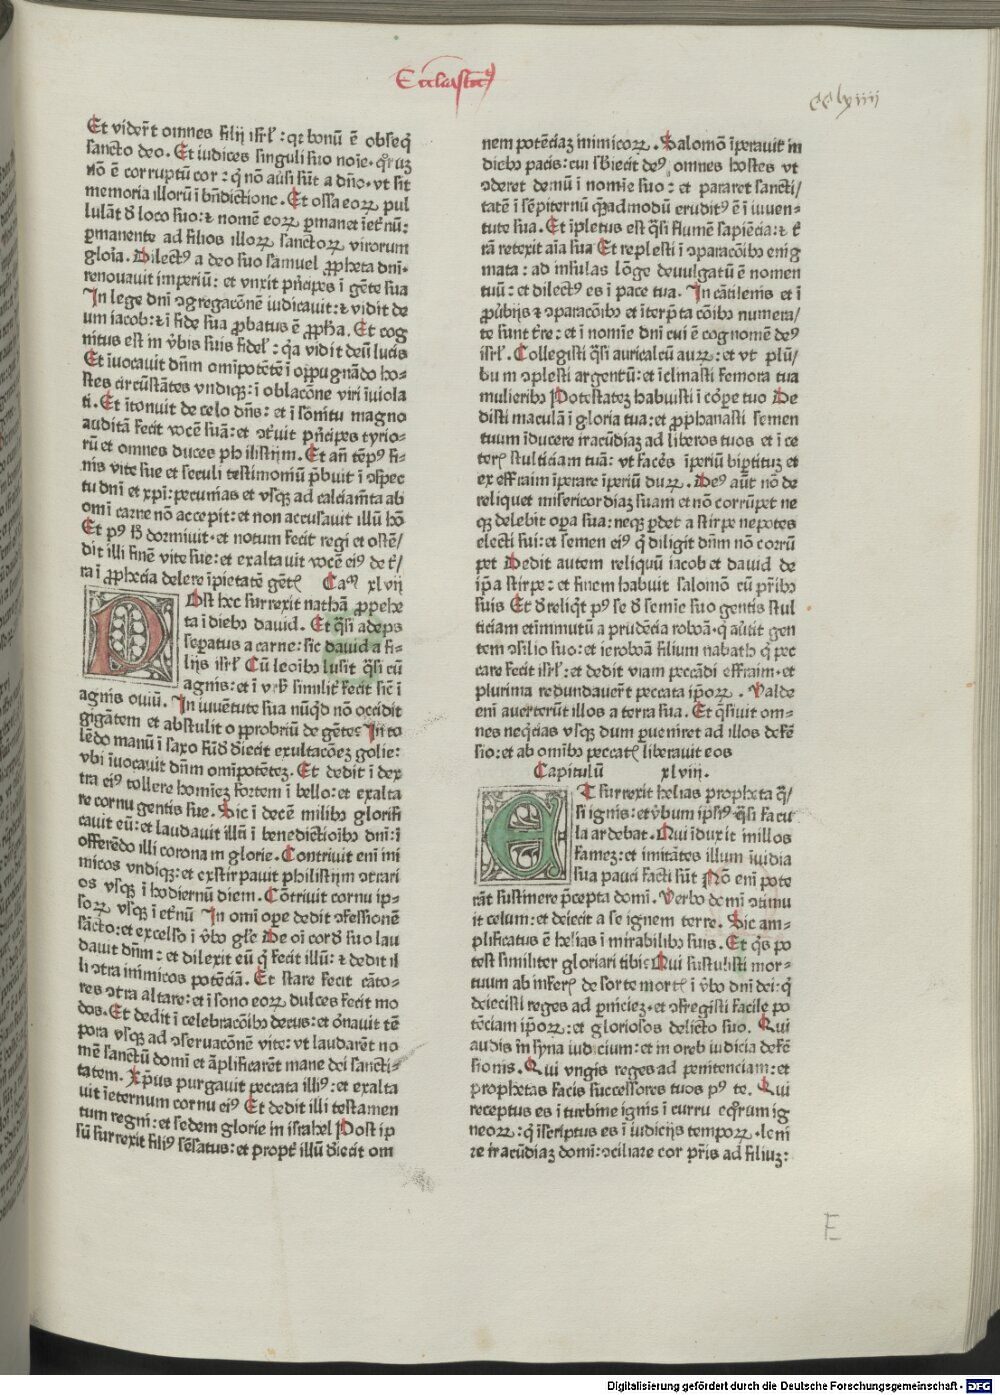 Ecclesiasticus
cclxiiii
Et vider̄t omnes filij isrl̄ : qꝛ bonū ē obseqͥ
sancto deo . Et iudices singuli suo noīe · qͦꝝ
nō ē corruptū cor : qͥ nō aūsi sūt a dn̄o · vt sit
memoria illorū ī bn̄dictione . Et ossa eoꝝ pul
lulāt ꝺ loco suo : ⁊ nomē eoꝝ ꝑmanet ī etͥnū :
ꝑmanente ad filios illoꝝ sanctoꝝ virorum
gloīa . Dilectꝰ a deo suo samuel ꝓpheta dn̄i ·
renouauit imperiū : et vnxit pͥncipes ī gēte sua
In lege dn̄i ꝯgregacōnē iudicauit : ⁊ vidit de
um iacob : ⁊ ī fide sua ꝓbatus ē ꝓpħa . Et cog
nitus est in v̄bis suis fidel̄ : qͥa vidit deū lucis
Et īuocauit dn̄m omīpotētē ī oꝓpugnādo ho⸗
stes circūstātes vndiqꝫ : ī oblacōne viri īuiola
ti . Et ītonuit de celo dn̄s : et ī sonitu magno
auditā fecit vocē suā : et ꝯtͥuit pͥncipes tyrio⸗
rū et omnes duces philistijm . Et an̄ tēpꝰ fi⸗
nis vite sue et seculi testimoniū p̄buit ī ꝯspec
tu dn̄i et xpī : pecunias et vsqꝫ ad calciam̄ta ab
omī carne nō accepit : et non accusauit illū hō
Et pꝰ h̄ dormiuit · et notum fecit regi et ostē/
dit illi finē vite sue : et exaltauit vocē eiꝰ de tͥ/
ra ī ꝓphecia delere īpietatē gētꝭ Caᵐ xlvij
POst hec surrexit nathā ꝓphe
ta ī diebꝫ dauid . Et qͣsi adeps
sepatus a carne : sic dauid a fi⸗
lijs isrl̄ Cū leoibꝫ lusit qͣsi cū
agnis : et ī vrsꝭ similit̄ fecit sic̄ ī
agnis ouiū . In iuuētute sua nūqͥd nō occidit
gigātem et abstulit opprobriū de gēte In to
lēdo manū ī saxo fūdꝭ deiecit exultacōeꝫ golie :
vbi īuocauit dn̄m omīpotēteꝫ . Et dedit ī dex
tra eiꝰ tollere homīeꝫ fortem ī bello : et exalta
re cornu gentis sue . Sic ī decē milibꝫ glorifi
cauit eū : et laudauit illū ī benedictioībꝫ dn̄i : ī
offerēdo illi coronam glorie . Contriuit enī inī
micos vndiqꝫ : et exstirpauit philistijm ꝯtrari
os vsqꝫ ī hodiernū diem . Cōtriuit cornu ip⸗
soꝝ vsqꝫ ī etͥnū In omī oꝑe dedit ꝯfessionē
sācto : et excelso ī v̄bo glīe De oī cordꝭ suo lau
dauit dn̄m : et dilexit eū qͥ fecit illū : ⁊ dedit il
li ꝯtra inimicos potēciā . Et stare fecit cāto⸗
res ꝯtra altare : et ī sono eoꝝ dulces fecit mo
dos . Et dedit ī celebracōibꝫ decus : et oͬnauit tē
pora vsqꝫ ad ꝯseruacōnē vite : vt laudarēt no
mē sanctū domī et āplificarēt mane dei sancti⸗
tatem . Xp̄us purgauit peccata illiꝰ : et exalta
uit īeternum cornu eiꝰ Et dedit illi testamen
tum regni : et sedem glorie in israhel Post ip
sū surrexit filiꝰ sēsatus : et proptͥ illū dīecit om
nem potēciaꝫ inimicoꝝ . Salomō īperauit in
diebꝫ pacis : cui sb̄iecit deꝰ omnes hostes vt
ꝯderet domū ī nomīe suo : et pararet sancti/
tatē ī sēpiternū qͣꝫadmodū eruditꝰ ē ī iuuen⸗
tute sua . Et īpletus est qͣsi flumē sapiēcia : ⁊ tͥ
rā retexit aīa sua Et replesti ī ꝯparacōibꝫ enig
mata : ad insulas lōge deuulgatū ē nomen
tuū : et dilectꝰ es ī pace tua . In cātilenis et ī
ꝓūbijs ⁊ ꝯparacōibꝫ et īterp̄ta cōibꝫ numera/
te sunt tr̄e : et ī nomīe dn̄i cui ē cognomē deꝰ
isrl̄ . Collegisti qͣsi auricalcū auꝝ : et vt plū/
bum ꝯplesti argentū : et īclinasti femora tua
mulieribꝫ Potestateꝫ habuisti ī coꝑe tuo De
disti maculā ī gloria tua : et ꝓphanasti semen
tuum īducere iracūdiaꝫ ad liberos tuos et ī ce
terꝭ stulticiam tuā : vt faces īperiū biꝑtituꝫ et
ex effraim īperare īperiū duꝝ . Deꝰ aūt nō de
reliquet misericordiaꝫ suam et nō corrūpet ne
qꝫ delebit oꝑa sua : neqꝫ ꝑdet a stirpe nepotes
electi sui : et semen eiꝰ qͥ diligit dn̄m nō corrū
pet Dedit autem reliquū iacob et dauid de
ip̄a stirpe : et finem habuit salomō cū pr̄ibꝫ
suis Et ꝺreliqͥt pꝰ se ꝺ semīe suo gentis stul
ticiam et īmmutū a prudēcia roboā · qͥ au̅tit gen
tem ꝯsilio suo : et ieroboā filium nabath qͥ pec
care fecit isrl̄ : et dedit viam peccādi effraim · et
plurima redundauer̄t peccata ip̄oꝝ . Valde
enī auerterūt illos a terra sua . Et qͣsiuit om⸗
nes neqͥcias vsqꝫ dum ꝑueniret ad illos defē
sio : et ab omībꝫ peccatꝭ liberauit eos
Capitulū xlviij .
ET surrexit helias propheta qͣ/
si ignis : et v̄bum ipsiꝰ qͣsi facu
la ardebat . Qui īduxit in illos
fameꝫ : et imitātes illum īuidia
sua pauci facti sūt Nō enī pote
rāt sustinere p̄cepta domī . Verbo domī ꝯtinu
it celum : et deiecit a se ignem terre . Sic am⸗
plificatus ē helias ī mirabilibꝫ suis . Et qͥs po
test similiter gloriari tibi : Qui sustulisti mor⸗
tuum ab inferꝭ de sorte mortꝭ ī v̄bo dn̄i dei : qͥ
deiecisti reges ad ꝑniciē · et ꝯfregisti facile po
tēciam ip̄oꝝ : et gloriosos de lecto suo . Qui
audis in syna iudicium : et in oreb iudicia defē
sionis . Qui vngis reges ad penitenciam : et
prophetas facis successores tuos pꝰ te . Qui
receptus es ī turbine ignis ī curru eqͦrum ig
neoꝝ : qͥ īscriptus es ī iudicijs tempoꝝ · leni
re iracūdiaꝫ domī : ꝯciliare cor pr̄is ad filiuꝫ :
E
Digitalisierung gefördert durch die Deutsche Forschungsgemeinschaft - DFG